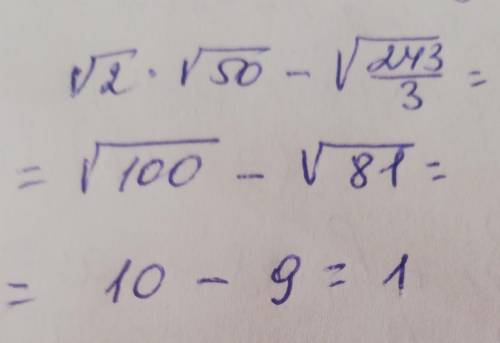 √2 · √50 − √(243/3) =
= √100 − √81 =
= 10 − 9 = 1